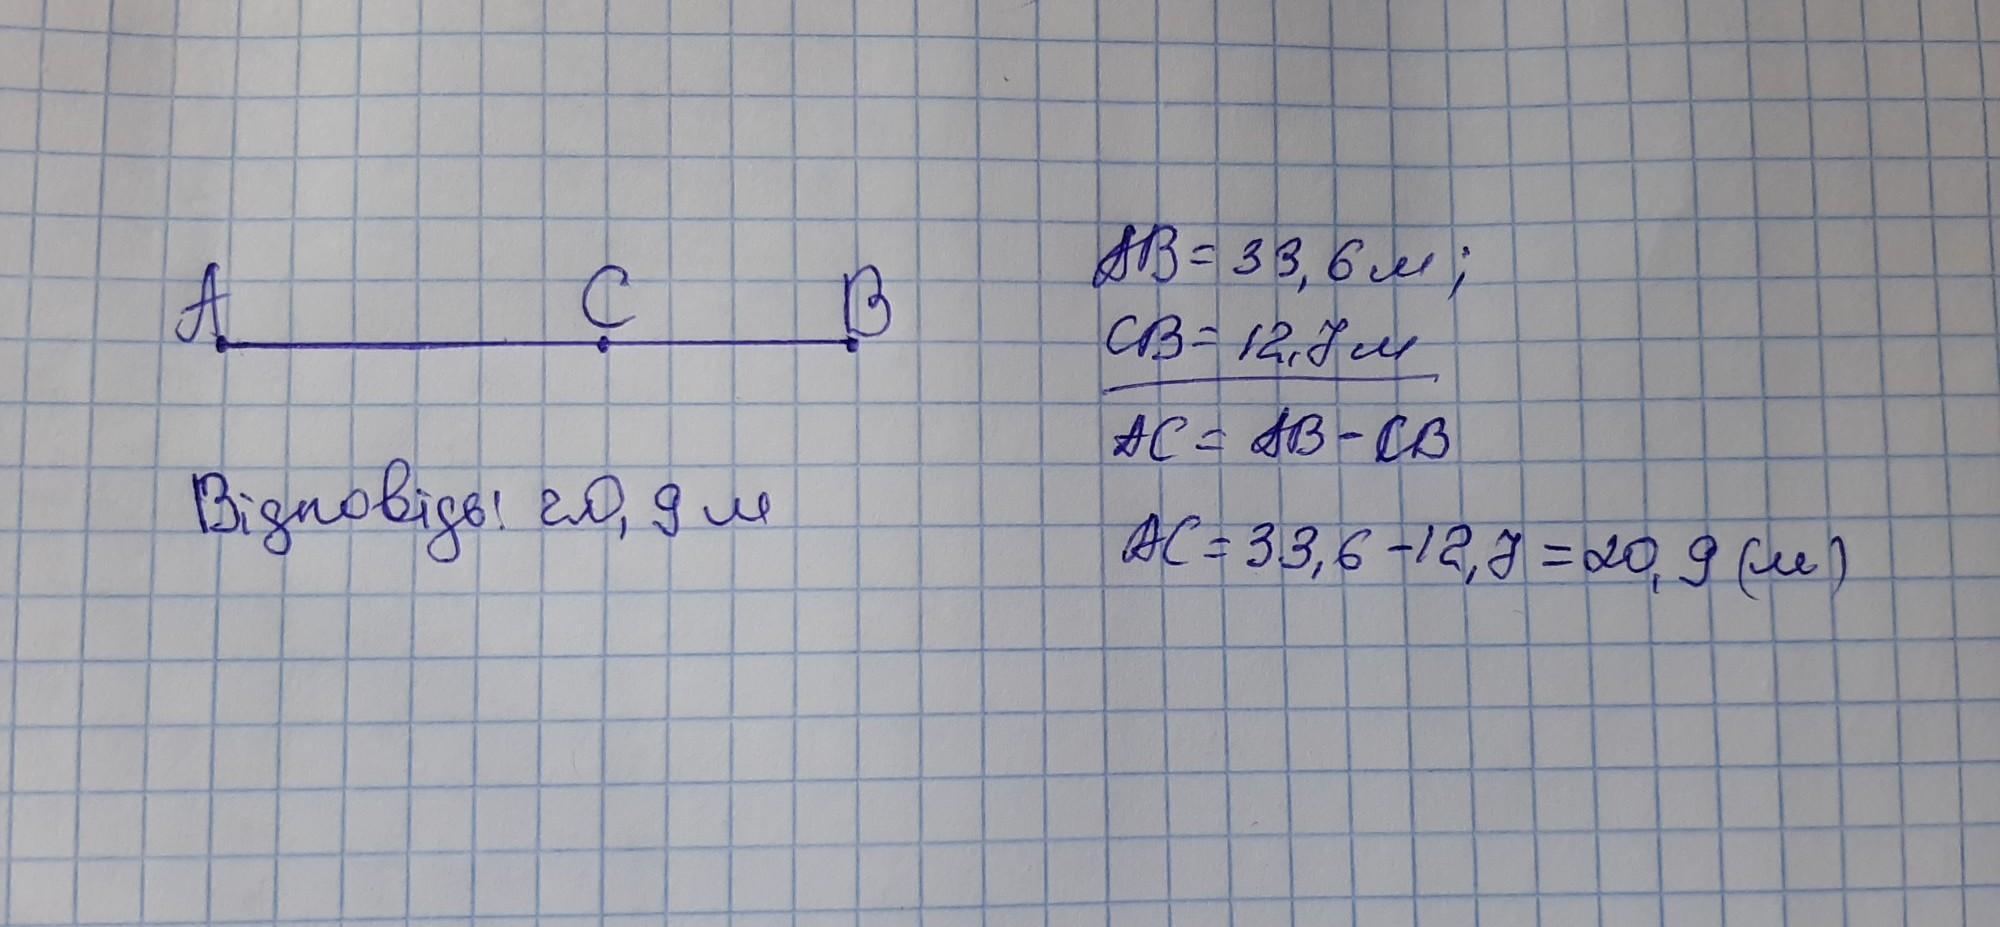 A C B
AB = 33,6 м;
CB = 12,7 м
AC = AB - CB
AC = 33,6 - 12,7 = 20,9 (м)
Відповідь: 20,9 м